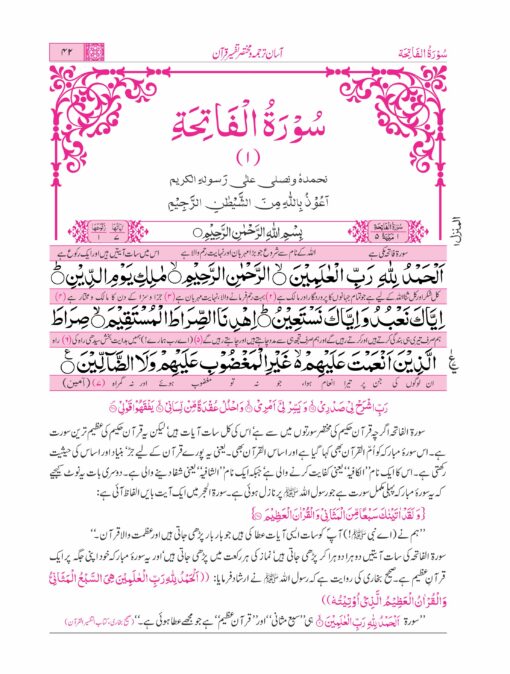 ۴۲
آسان ترجمہ و مختصر تفسیر قرآن
سُوْرَۃُ الْفَاتِحَۃ
سُوْرَةُ الْفَاتِحَةِ
(۱)
نحمدہٗ ونصلی علیٰ رسولہِ الکریم
اَعُوْذُ بِاللّٰهِ مِنَ الشَّيْطٰنِ الرَّجِيْمِ
المنزل ۱
بِسْمِ اللّٰهِ الرَّحْمٰنِ الرَّحِيْمِ
سورۃ فاتحہ مکی ہے
اللہ کے نام سے شروع جو بڑا مہربان اور نہایت رحم والا ہے
اس میں سات آیتیں ہیں اور ایک رکوع ہے
اَلْحَمْدُ لِلّٰهِ رَبِّ الْعٰلَمِيْنَ ۙ﴿۱﴾ الرَّحْمٰنِ الرَّحِيْمِ ۙ﴿۲﴾ مٰلِكِ يَوْمِ الدِّيْنِ ؕ﴿۳﴾
کل شکر اور کل ثنا اللہ کے لیے ہے جو تمام جہانوں کا پروردگار اور مالک ہے (۲) بہت رحم فرمانے والا، نہایت مہربان ہے (۳) جزا و سزا کے دن کا مالک و مختار ہے (۴)
اِيَّاكَ نَعْبُدُ وَ اِيَّاكَ نَسْتَعِيْنُ ؕ﴿۴﴾ اِهْدِنَا الصِّرَاطَ الْمُسْتَقِيْمَ ۙ﴿۵﴾ صِرَاطَ
ہم صرف تیری ہی بندگی کرتے ہیں اور کرتے رہیں گے اور ہم صرف تجھ ہی سے مدد چاہتے ہیں اور چاہتے رہیں گے (۵) (اے رب ہمارے!) ہمیں ہدایت بخش سیدھی راہ کی (۶) راہ
الَّذِيْنَ اَنْعَمْتَ عَلَيْهِمْ ۙ﴿۶﴾ غَيْرِ الْمَغْضُوْبِ عَلَيْهِمْ وَلَا الضَّآلِّيْنَ ﴿۷﴾
ان لوگوں کی جن پر تیرا انعام ہوا، جو نہ تو مغضوب ہوئے اور نہ گمراہ (۷) (آمین)
رَبِّ اشْرَحْ لِیْ صَدْرِیْ ۙ وَ یَسِّرْ لِیْٓ اَمْرِیْ ۙ وَ احْلُلْ عُقْدَۃً مِّنْ لِّسَانِیْ ۙ یَفْقَھُوْا قَوْلِیْ
سورۃ الفاتحہ اگرچہ قرآن حکیم کی مختصر سورتوں میں سے ہے اس کی کل سات آیات ہیں لیکن یہ قرآن حکیم کی عظیم ترین سورت
ہے۔ اس سورۂ مبارکہ کو اُمّ القرآن بھی کہا گیا ہے اور اساس القرآن بھی۔ یعنی یہ پورے قرآن کے لیے جڑ بنیاد اور اساس کی حیثیت
رکھتی ہے۔ اس کا ایک نام "الکافیہ" یعنی کفایت کرنے والی ہے جبکہ ایک نام "الشافیہ" یعنی شفا دینے والی ہے۔ دوسری بات یہ نوٹ کیجیے
کہ یہ سورۂ مبارکہ پہلی مکمل سورت ہے جو رسول اللہ ﷺ پر نازل ہوئی ہے۔ سورۃ الحجر میں ایک آیت بایں الفاظ آئی ہے:
{وَلَقَدْ اٰتَیْنٰکَ سَبْعًا مِّنَ الْمَثَانِیْ وَالْقُرْاٰنَ الْعَظِیْمَ}
"ہم نے (اے نبیﷺ!) آپ کو سات ایسی آیات عطا کی ہیں جو بار بار پڑھی جاتی ہیں اور عظمت والا قرآن۔"
سورۃ الفاتحہ کی سات آیتیں دوہرا دوہرا کر پڑھی جاتی ہیں نماز کی ہر رکعت میں پڑھی جاتی ہیں اور یہ سورۂ مبارکہ خود اپنی جگہ پر ایک
قرآنِ عظیم ہے۔ صحیح بخاری کی روایت ہے کہ رسول اللہ ﷺ نے ارشاد فرمایا: ((اَلْحَمْدُ لِلّٰهِ رَبِّ الْعٰلَمِیْنَ هِیَ السَّبْعُ الْمَثَانِیْ
وَالْقُرْاٰنُ الْعَظِیْمُ الَّذِیْ اُوْتِیْتُهٗ))
"سورۃ اَلْحَمْدُ لِلّٰهِ رَبِّ الْعٰلَمِیْنَ ہی "سبع مثانی" اور "قرآن عظیم" ہے جو مجھے عطا ہوئی ہے۔" (صحیح بخاری، کتاب تفسیر القرآن)